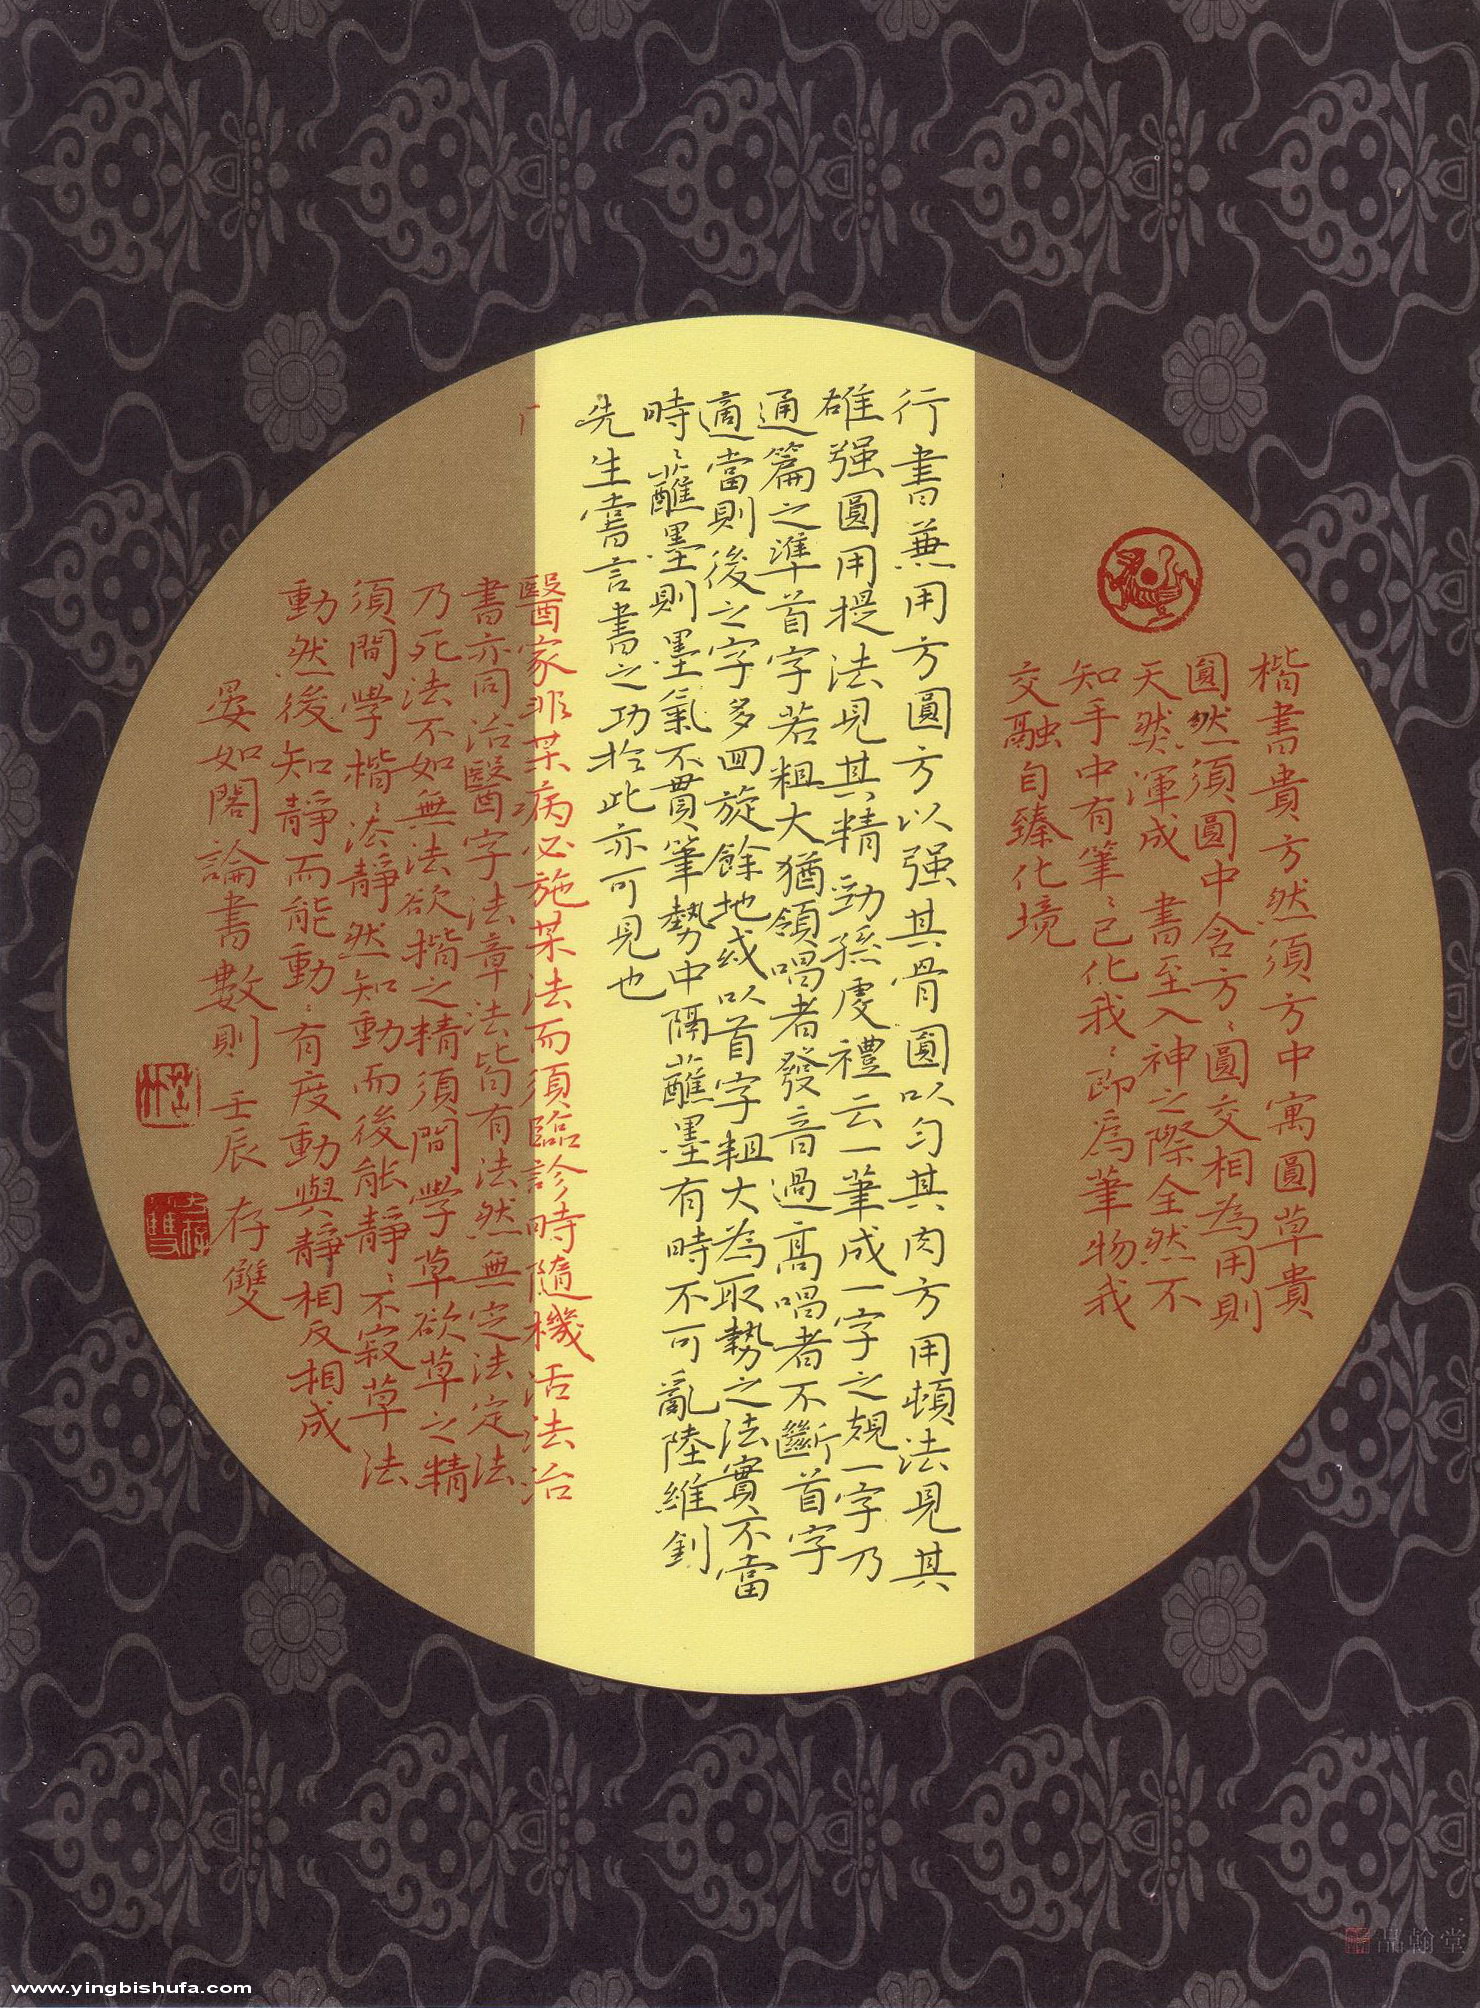 楷書貴方然須方中寓圓草貴
圓然須圓中含方方圓交相為用則
天然渾成書至入神之際全然不
知手中有筆筆已化我我即為筆物我
交融自臻化境
行書兼用方圓方以强其骨圓以匀其肉方用頓法見其
雄强圓用提法見其精勁孫虔禮云一筆成一字之規一字乃
通篇之準首字若粗大猶領唱者發音過高唱者不斷首字
適當則後之字多回旋餘地或以首字粗大為取勢之法實不當
時時蘸墨則墨氣不貫筆勢中隔蘸墨有時不可亂陸維釗
先生嘗言書之功於此亦可見也
醫家非某病必施某法而須臨診時隨機活法治
書亦同治醫字法章法皆有法然無定法定法
乃死法不如無法欲楷之精須間學草欲草之精
須間學楷楷法靜然知動而後能靜靜不寂草法
動然後知靜而能動動有度動與靜相反相成
晏如閣論書數則 壬辰 存雙
品翰堂
www.yingbishufa.com